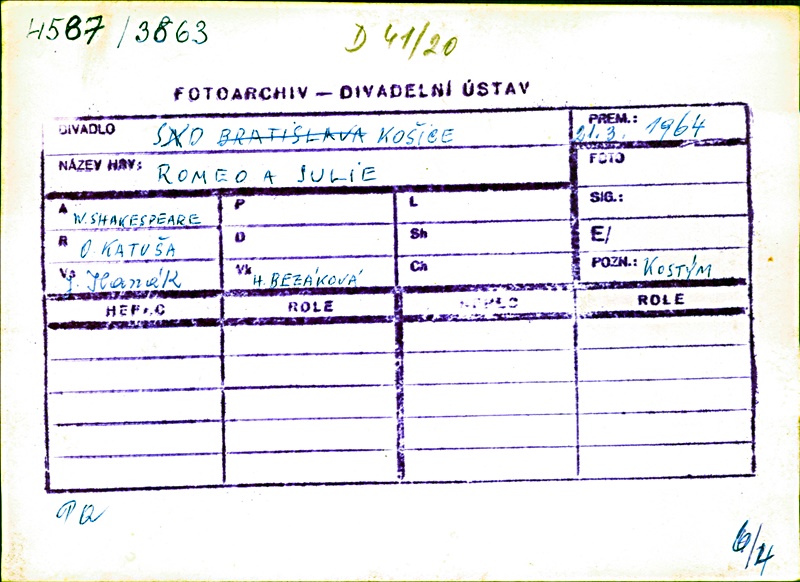 4587/3863
D 41/20
FOTOARCHIV — DIVADELNÍ ÚSTAV
DIVADLO SND BRATISLAVA KOŠICE
PREM.: 21.3. 1964
NÁZEV HRY: ROMEO A JULIE
FOTO
A W. SHAKESPEARE P L
SIG.:
R O. KATUŠA D Sh
E/
Vs J. Hanák Vk H. BEZÁKOVÁ Ch
POZN.: KOSTÝM
HEREC ROLE HEREC ROLE
6/4